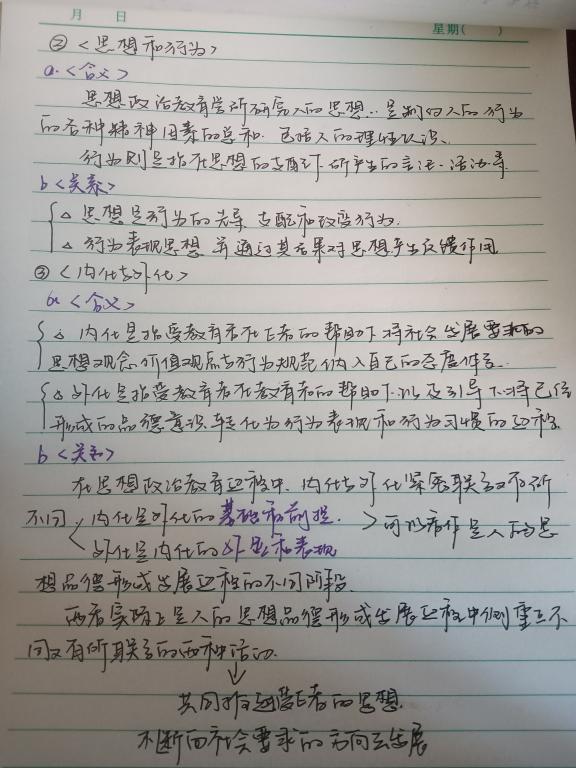 月 日
星期( )
② <思想和行为>
a. <含义>
思想政治教育学所研究人的思想.. 是制约人的行为
的各种精神因素的总和. 包括人的理性认识、
行为则是指在思想的支配下所产生的言语·活动等
b <关系>
△ 思想是行为的先导 支配和改变行为.
△ 行为表现思想 并通过其后果对思想产生反馈作用
③ <内化与外化>
a <含义>
△ 内化是指受教育者在教者的帮助下将社会发展要求的
思想观念.价值观点与行为规范纳入自己的态度体系..
△ 外化是指受教育者在教育者的帮助下以及引导下.将已经
形成的品德意识转化为行为表现和行为习惯的过程.
b <关系>
在思想政治教育过程中. 内化与外化紧密联系又有所
不同 内化是外化的基础和前提. > 可以看作是人的思
外化是内化的外显和表现
想品德形成发展过程的不同阶段.
两者实际上是人的思想品德形成发展过程中侧重点不
同又有所联系的两种活动.
↓
共同推进受教者的思想.
不断向社会要求的方向去发展